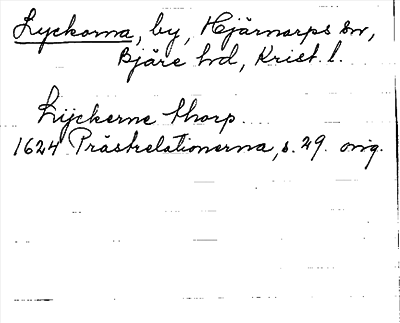 Lyckorna, by, Hjärnarps sn,
Bjäre hd, Krist. l.
Lijckerne thorp
1624 Prästrelationerna, s. 29. orig.